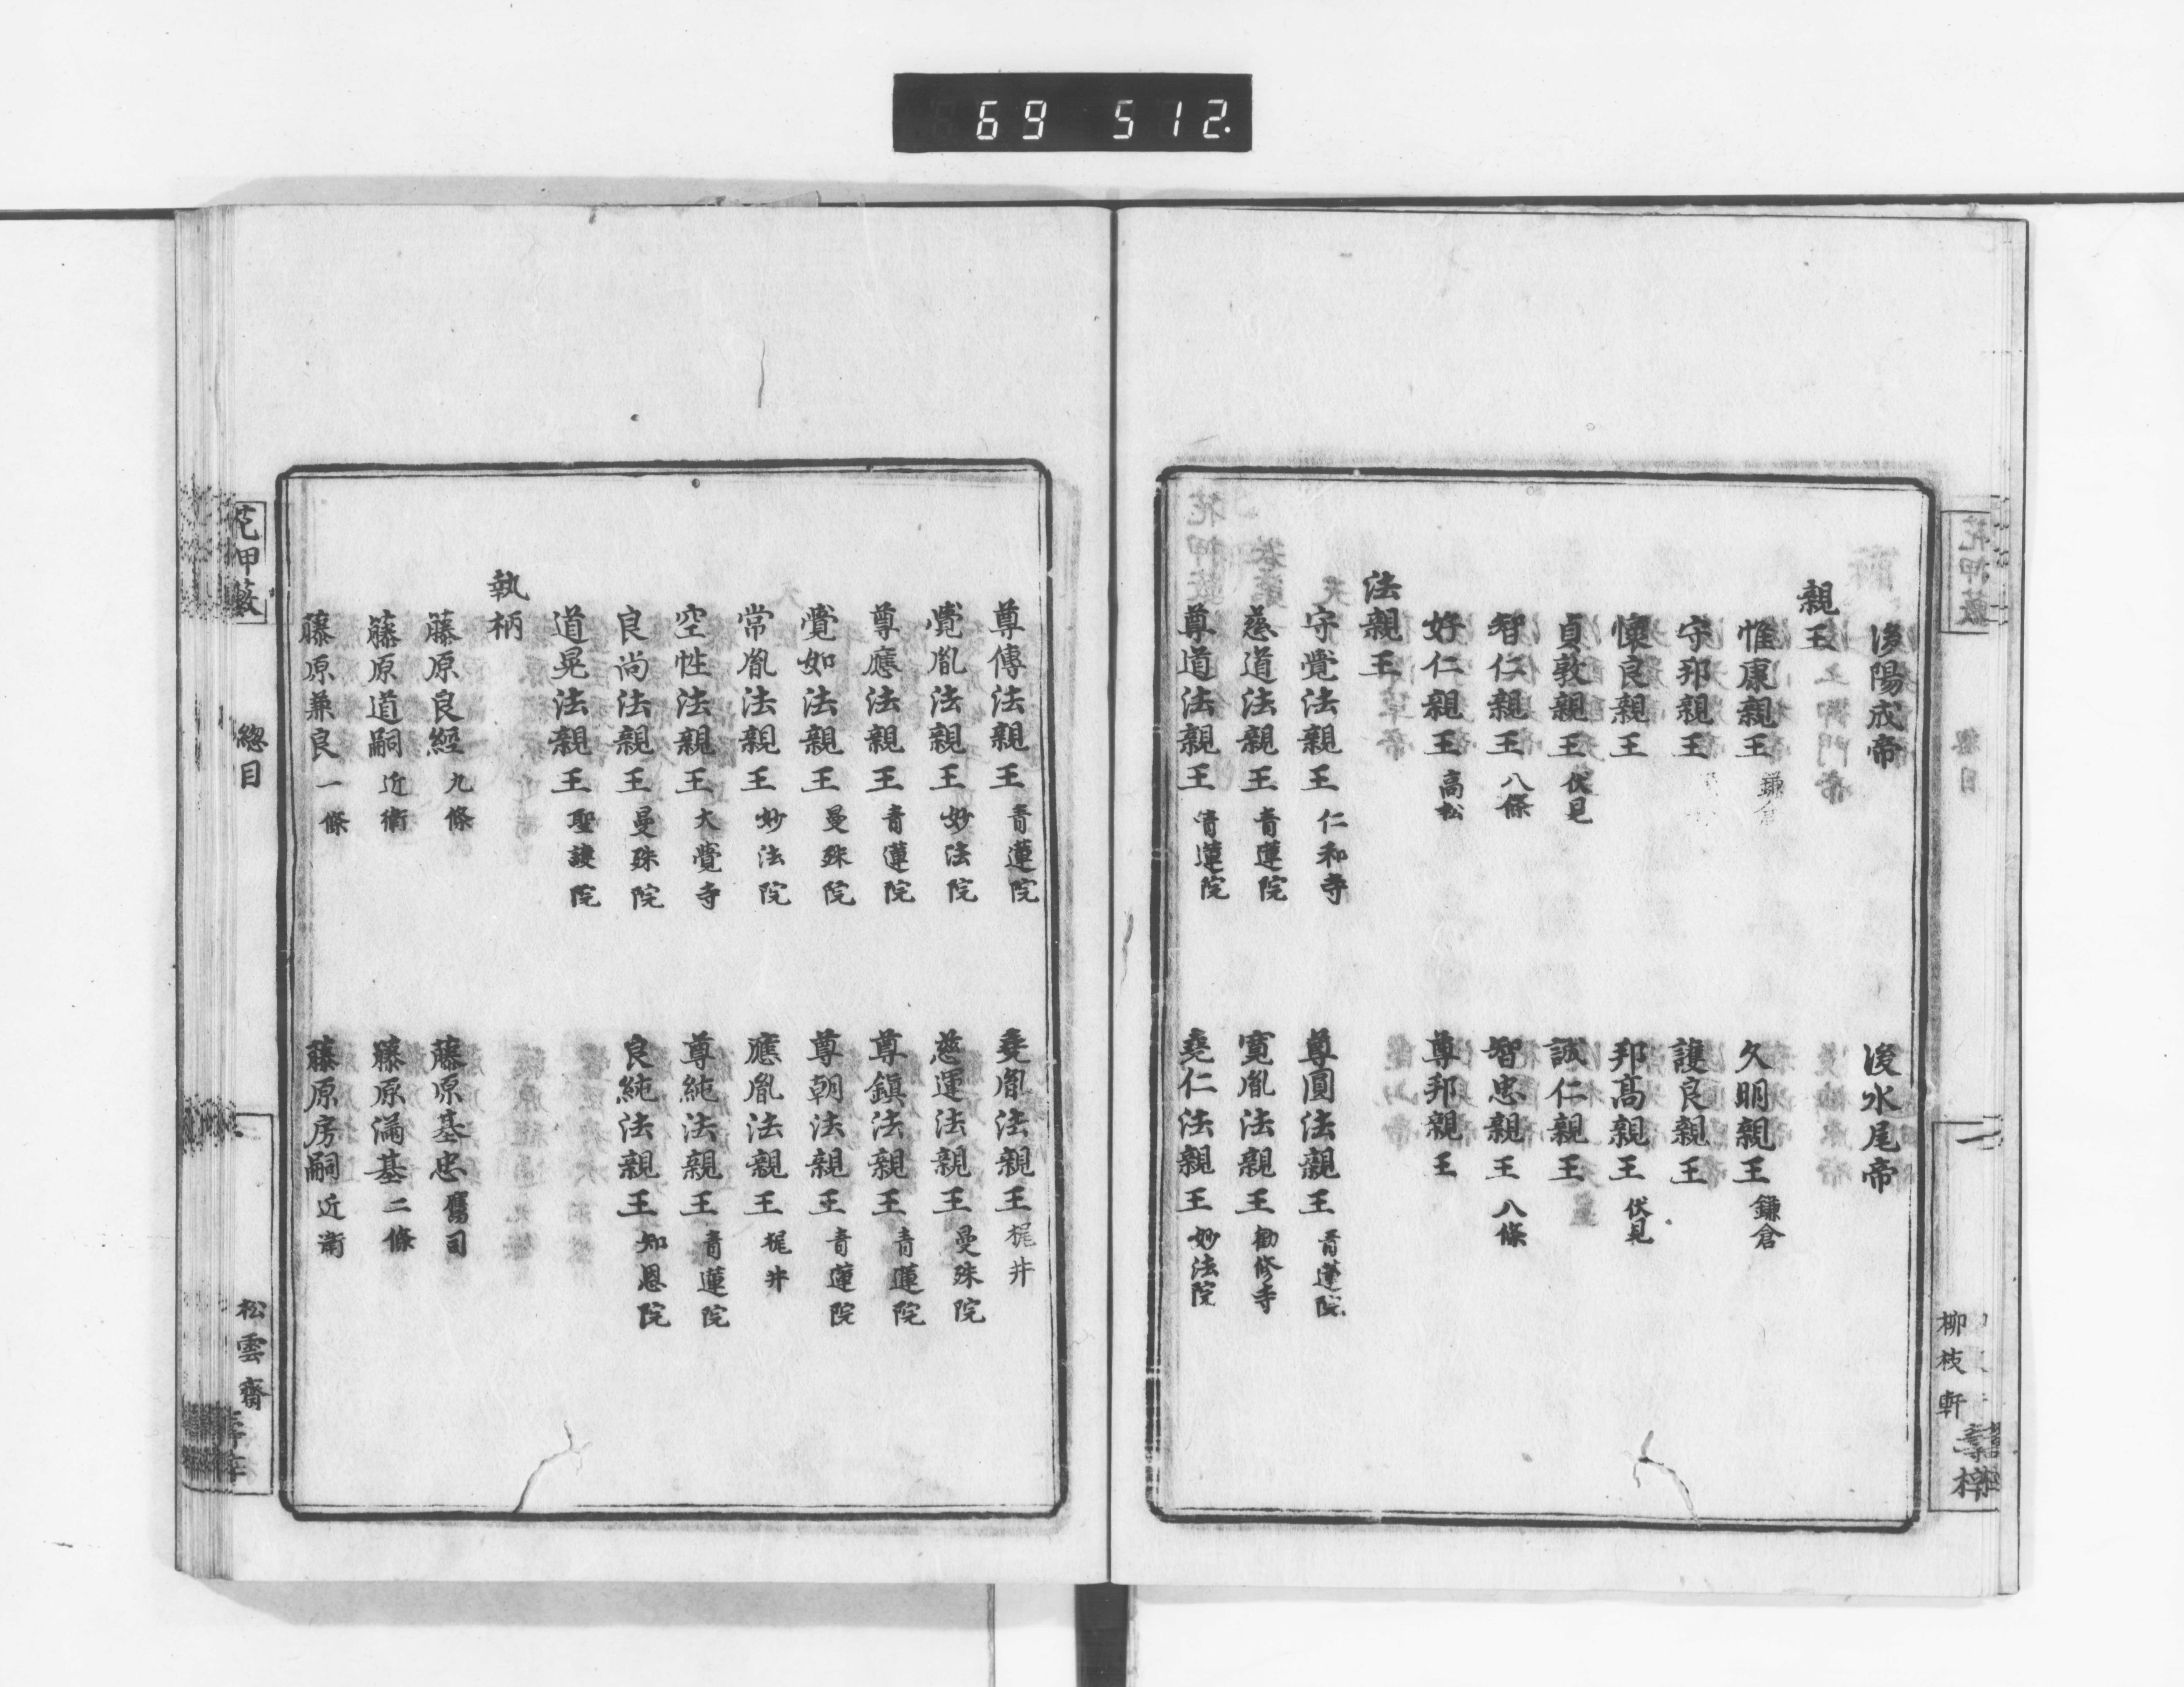 69 512.
花押薮
柳枝軒
後陽成帝 後水尾帝
親王
惟康親王 鎌倉 久明親王 鎌倉
守邦親王 護良親王
懐良親王 邦高親王 伏見
貞敦親王 伏見 誠仁親王
智仁親王 八條 智忠親王 八條
好仁親王 高松 尊邦親王
法親王
守覺法親王 仁和寺 尊圓法親王 青蓮院
慈道法親王 青蓮院 寛胤法親王 勧修寺
尊道法親王 青蓮院 堯仁法親王 妙法院
尊傳法親王 青蓮院 堯胤法親王 梶井
覺胤法親王 妙法院 慈運法親王 曼殊院
尊應法親王 青蓮院 尊鎮法親王 青蓮院
覺如法親王 曼殊院 尊朝法親王 青蓮院
常胤法親王 妙法院 應胤法親王 梶井
空性法親王 大覺寺 尊純法親王 青蓮院
良尚法親王 曼殊院 良純法親王 知恩院
道晃法親王 聖護院
執柄
藤原良經 九條 藤原基忠 鷹司
藤原道嗣 近衛 藤原満基 二條
藤原兼良 一條 藤原房嗣 近衛
花押薮 總目 松雲齋